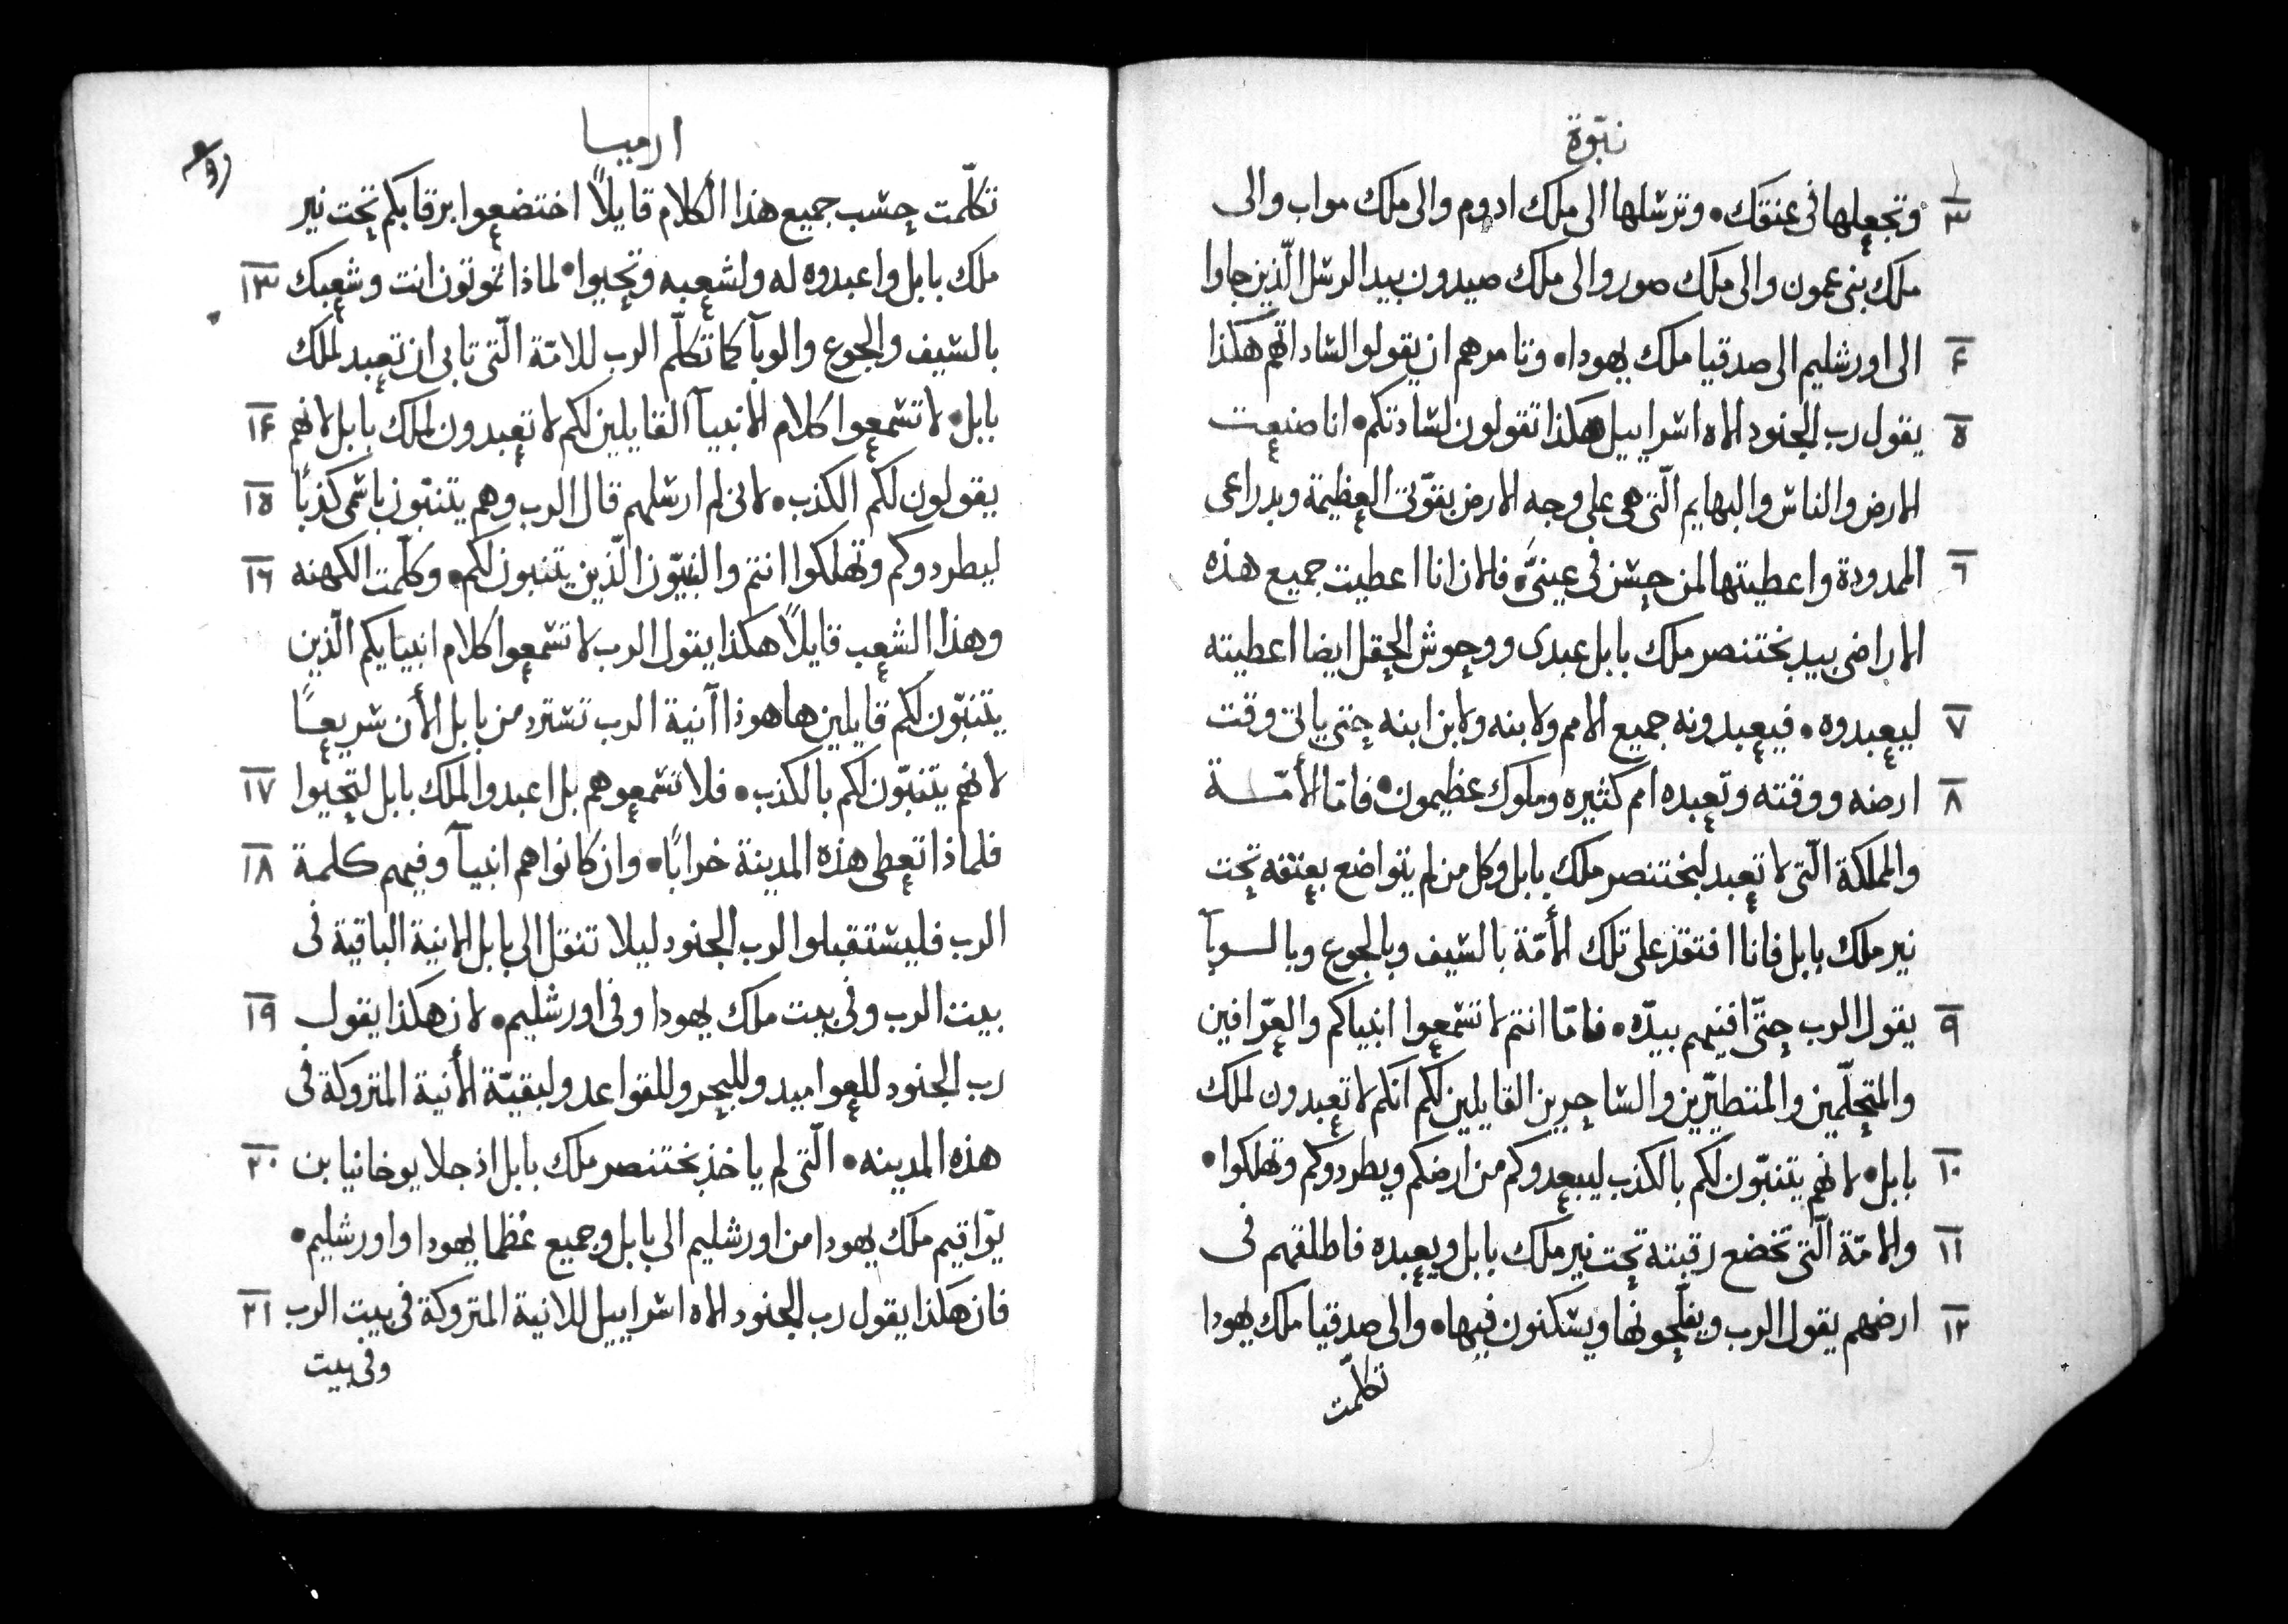 نبوّة
٣ وتجعلها فى عنقك • وترسلها الى ملك ادوم والى ملك مواب والى
ملك بنى عمون والى ملك صور والى ملك صيدون بيد الرسل الّذين جاوا
٤ الى اورشليم الى صدقيا ملك يهودا • وتامرهم ان يقولوا لساداتهم هكذا
٥ يقول رب الجنود الاه اسراييل هكذا تقولون لسادتكم • انا صنعت
الارض والناس والبهايم الّتى هى على وجه الارض بقوّتى العظيمة وبدراعى
٦ الممدودة واعطيتها لمن حسن فى عينىَّ • فالان انا اعطيت جميع هذه
الاراضى بيد بختنصر ملك بابل عبدى ووحوش الحقل ايضا اعطيته
٧ ليعبدوه • فيعبدونه جميع الامم ولابنه ولابن ابنه حتى ياتى وقت
٨ ارضه ووقته وتعبده امم كثيره وملوك عظيمون • فامّا الأمّة
والمملكة الّتى لا تعبد لبختنصر ملك بابل وكل من لم يتواضع بعنقه تحت
نير ملك بابل فانا افتقد على تلك الأمّة بالسيف وبالجوع وبالوبآ
٩ يقول الرب حتّى افنيهم بيدّه • فامّا انتم لا تسمعوا انبياكم والعرّافين
والمتحلّمين والمتطيّرين والساحرين القايلين لكم انكم لا تعبدون لملك
١٠ بابل • لانهم يتنبّون لكم بالكذب ليبعدوكم من ارضكم ويطردوكم وتهلكوا •
١١ والامّة الّتى تخضع رقبته تحت نير ملك بابل ويعبده فاطلقهم فى
١٢ ارضهم يقول الرب ويفلّحونها ويسكنون فيها • والى صدقيا ملك يهودا
تكلّمت
ارميا
تكلّمت حسب جميع هذا الكلام قايلاً اختضعوا برقابكم تحت نير
ملك بابل واعبدوه له ولشعبه وتحيوا • لماذا تموتون انت وشعبك ١٣
بالسيف والجوع والوبآ كما تكلّم الرب للامّة الّتى تابى ان تعبد لملك
بابل • لا تسمعوا كلام الانبيآ القايلين لكم لا تعبدون لملك بابل لانهم ١٤
يقولون لكم الكذب • لانى لم ارسلهم قال الرب وهم يتنبّون باسمى كذبًا ١٥
ليطردوكم وتهلكوا انتم والنبيّون الّذين يتنبون لكم • وكلّمت الكهنه ١٦
وهذا الشعب قايلاً هكذا يقول الرب لا تسمعوا كلام انبيايكم الّذين
يتنبّون لكم قايلين ها هوذا آنية الرب تسترد من بابل الأن سريعًا
لانهم يتنبّون لكم بالكذب • فلا تسمعوهم بل اعبدوا لملك بابل لتحيوا ١٧
فلماذا تعطى هذه المدينة خرابًا • وان كانوا هم انبيآ وفيهم كلمة ١٨
الرب فليستقبلوا لرب الجنود ليلا تنقل الى بابل الانية الباقية فى
بيت الرب وفى بيت ملك يهودا وفى اورشليم • لان هكذا يقول ١٩
رب الجنود للعواميد وللبحر وللقواعد ولبقيّة الأنية المتروكة فى
هذه المدينه • الّتى لم ياخذ بختنصر ملك بابل اذ جلا يوخانيا بن ٢٠
يّواقيم ملك يهودا من اورشليم الى بابل وجميع عُظما يهودا واورشليم •
فان هكذا يقول رب الجنود الاه اسراييل للانية المتروكة فى بيت الرب ٢١
وفى بيت